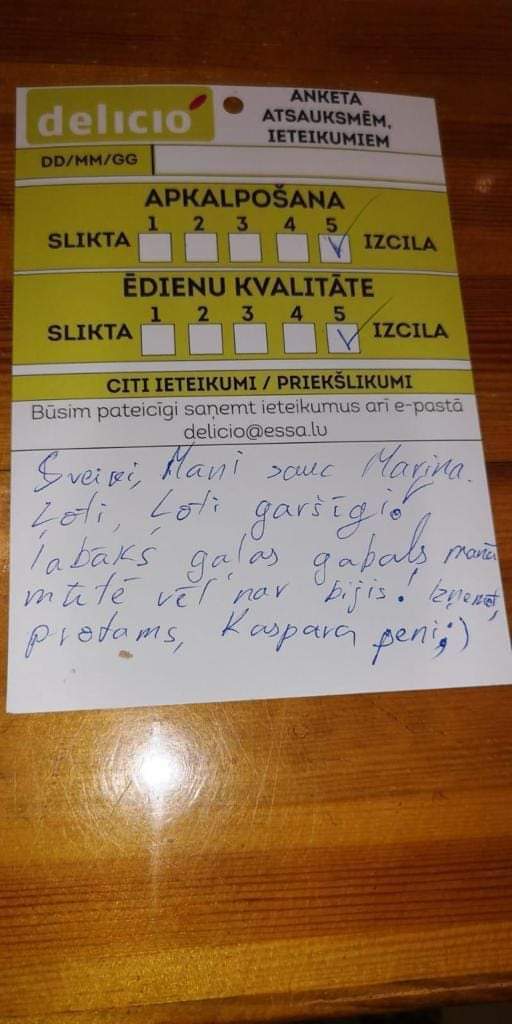 delicio
ANKETA
ATSAUKSMĒM,
IETEIKUMIEM
DD/MM/GG
APKALPOŠANA
1 2 3 4 5
SLIKTA IZCILA
ĒDIENU KVALITĀTE
1 2 3 4 5
SLIKTA IZCILA
CITI IETEIKUMI / PRIEKŠLIKUMI
Būsim pateicīgi saņemt ieteikumus arī e-pastā
delicio@essa.lv
Sveiki, Mani sauc Marina.
Ļoti, Ļoti garšīgi!
labāks gaļas gabals manā
mutē vēl nav bijis! Izņemot,
protams, Kaspara peni;)